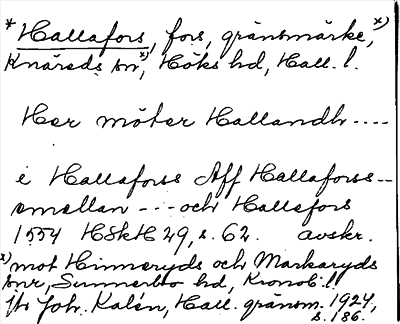 * Hallafors, fors, gränsmärke, x)
Knäreds sn x), Höks hd, Hall. l.
Her möter Hallandh ----
i Hallaforss Aff Hallaforss --
emellan --- och Hallafors
1554 HSkH 29, s. 62. avskr.
x) mot Hinneryds och Markaryds
snr, Sunnerbo hd, Kronob. l.
jfr Joh. Kalén, Hall. gränsm. 1924,
s. 186.